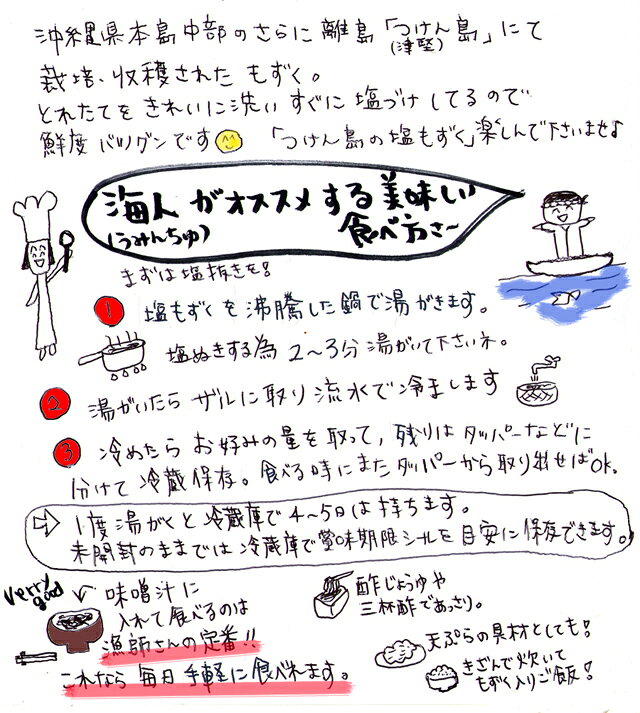 沖縄県本島中部のさらに離島「つけん島」にて
(津堅)
栽培、収穫された もずく。
とれたてを きれいに洗い すぐに 塩づけ してるので
鮮度 バツグンです 「つけん島の塩もずく」楽しんで下さいませ♪
海人がオススメする美味しい
(うみんちゅ) 食べ方さ〜
まずは塩抜きを!
1 塩もずくを沸騰した鍋で湯がきます。
塩ぬきする為 2〜3分 湯がいて下さいネ。
2 湯がいたら ザルに取り 流水で冷まします
3 冷めたら お好みの量を取って、残りは タッパーなどに
分けて 冷蔵保存。食べる時にまた タッパーから取り出せばOK.
⇨ 1度湯がくと 冷蔵庫で4〜5日は持ちます。
未開封のままでは 冷蔵庫で賞味期限シールを目安に保存できます。
verry good
味噌汁に
入れて食べるのは
漁師さんの定番!!
これなら 毎日 手軽に食べれます。
酢じょうゆや
三杯酢であっさり。
天ぷらの具材としても!
きざんで炊いて
もずく入りご飯!